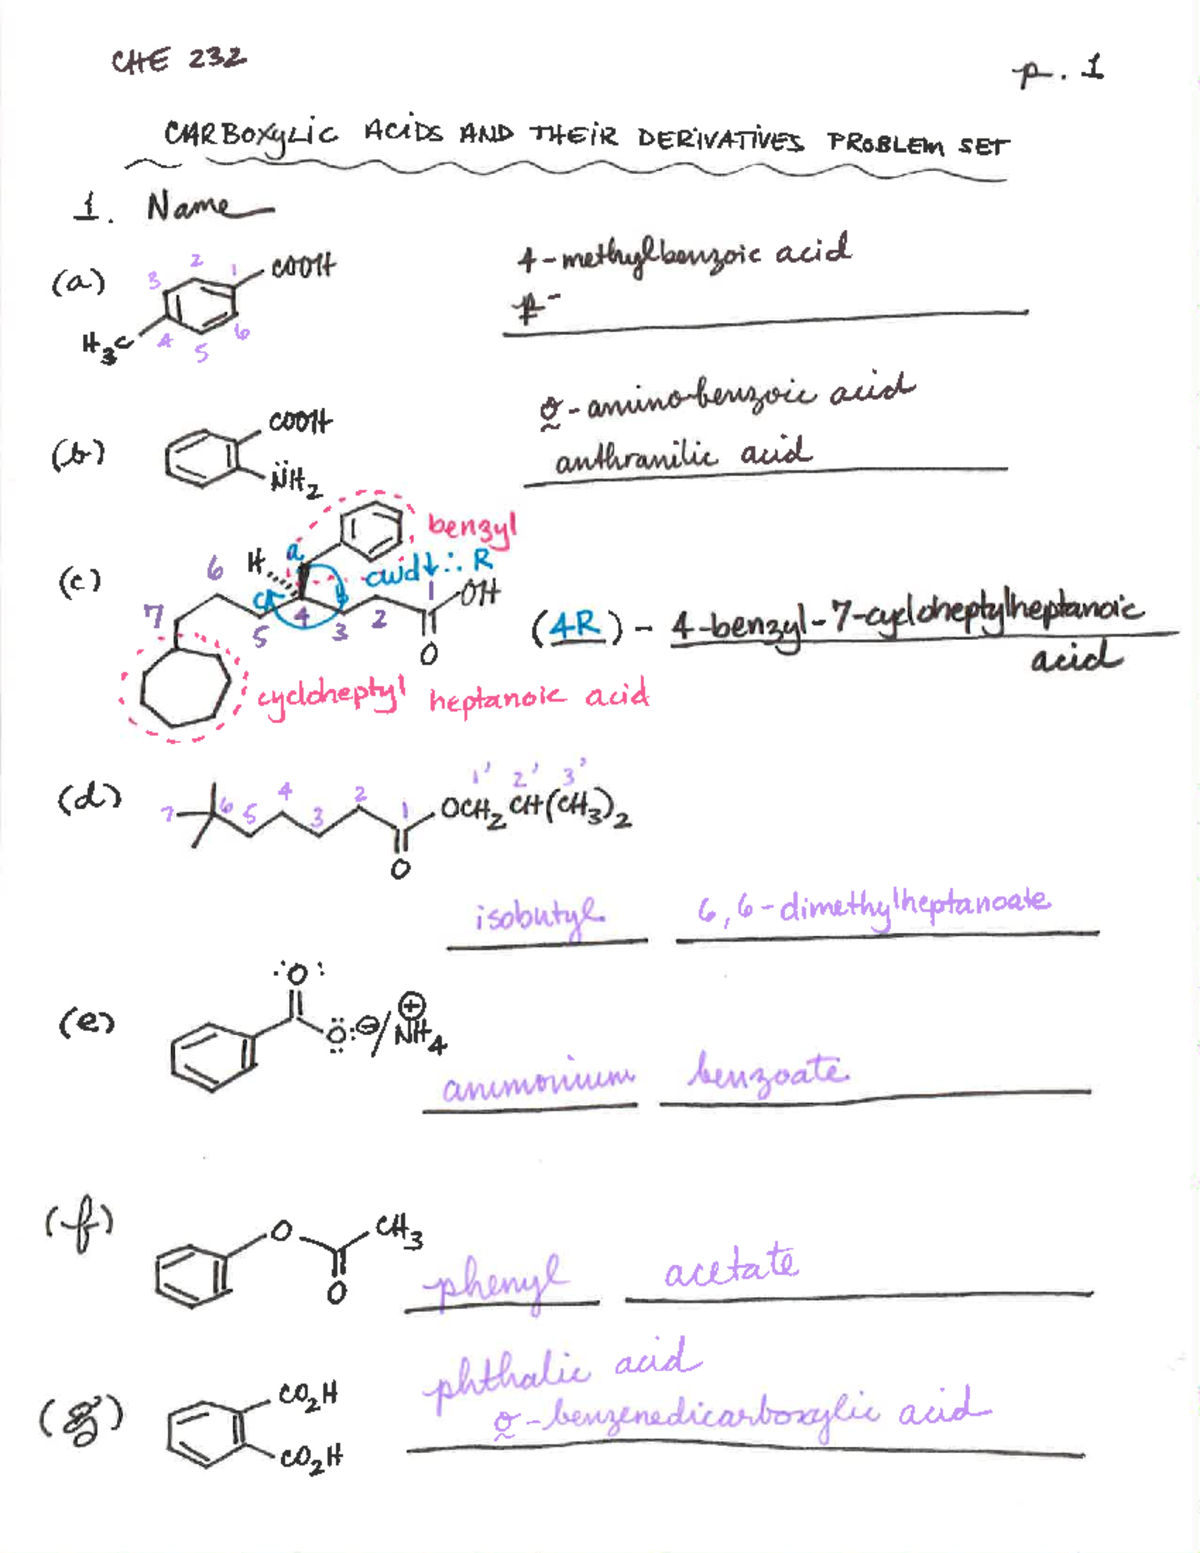 CHE 232
p. 1
CARBOXYLIC ACIDS AND THEIR DERIVATIVES PROBLEM SET
1. Name
(a) H3C 1 2 3 4 5 6 COOH
4-methylbenzoic acid
p-
(b) COOH
NH2
o-aminobenzoic acid
anthranilic acid
(c) H a b c 1 2 3 4 5 6 7 OH O
benzyl
cwd↓∴ R
cycloheptyl heptanoic acid
(4R)-4-benzyl-7-cycloheptylheptanoic
acid
(d) 7 6 5 4 3 2 1 O
1' 2' 3'
OCH2CH(CH3)2
isobutyl 6,6-dimethylheptanoate
(e) :O:
:O:⊖/⊕NH4
ammonium benzoate
(f) O CH3
O
phenyl acetate
(g) CO2H
CO2H
phthalic acid
o-benzenedicarboxylic acid